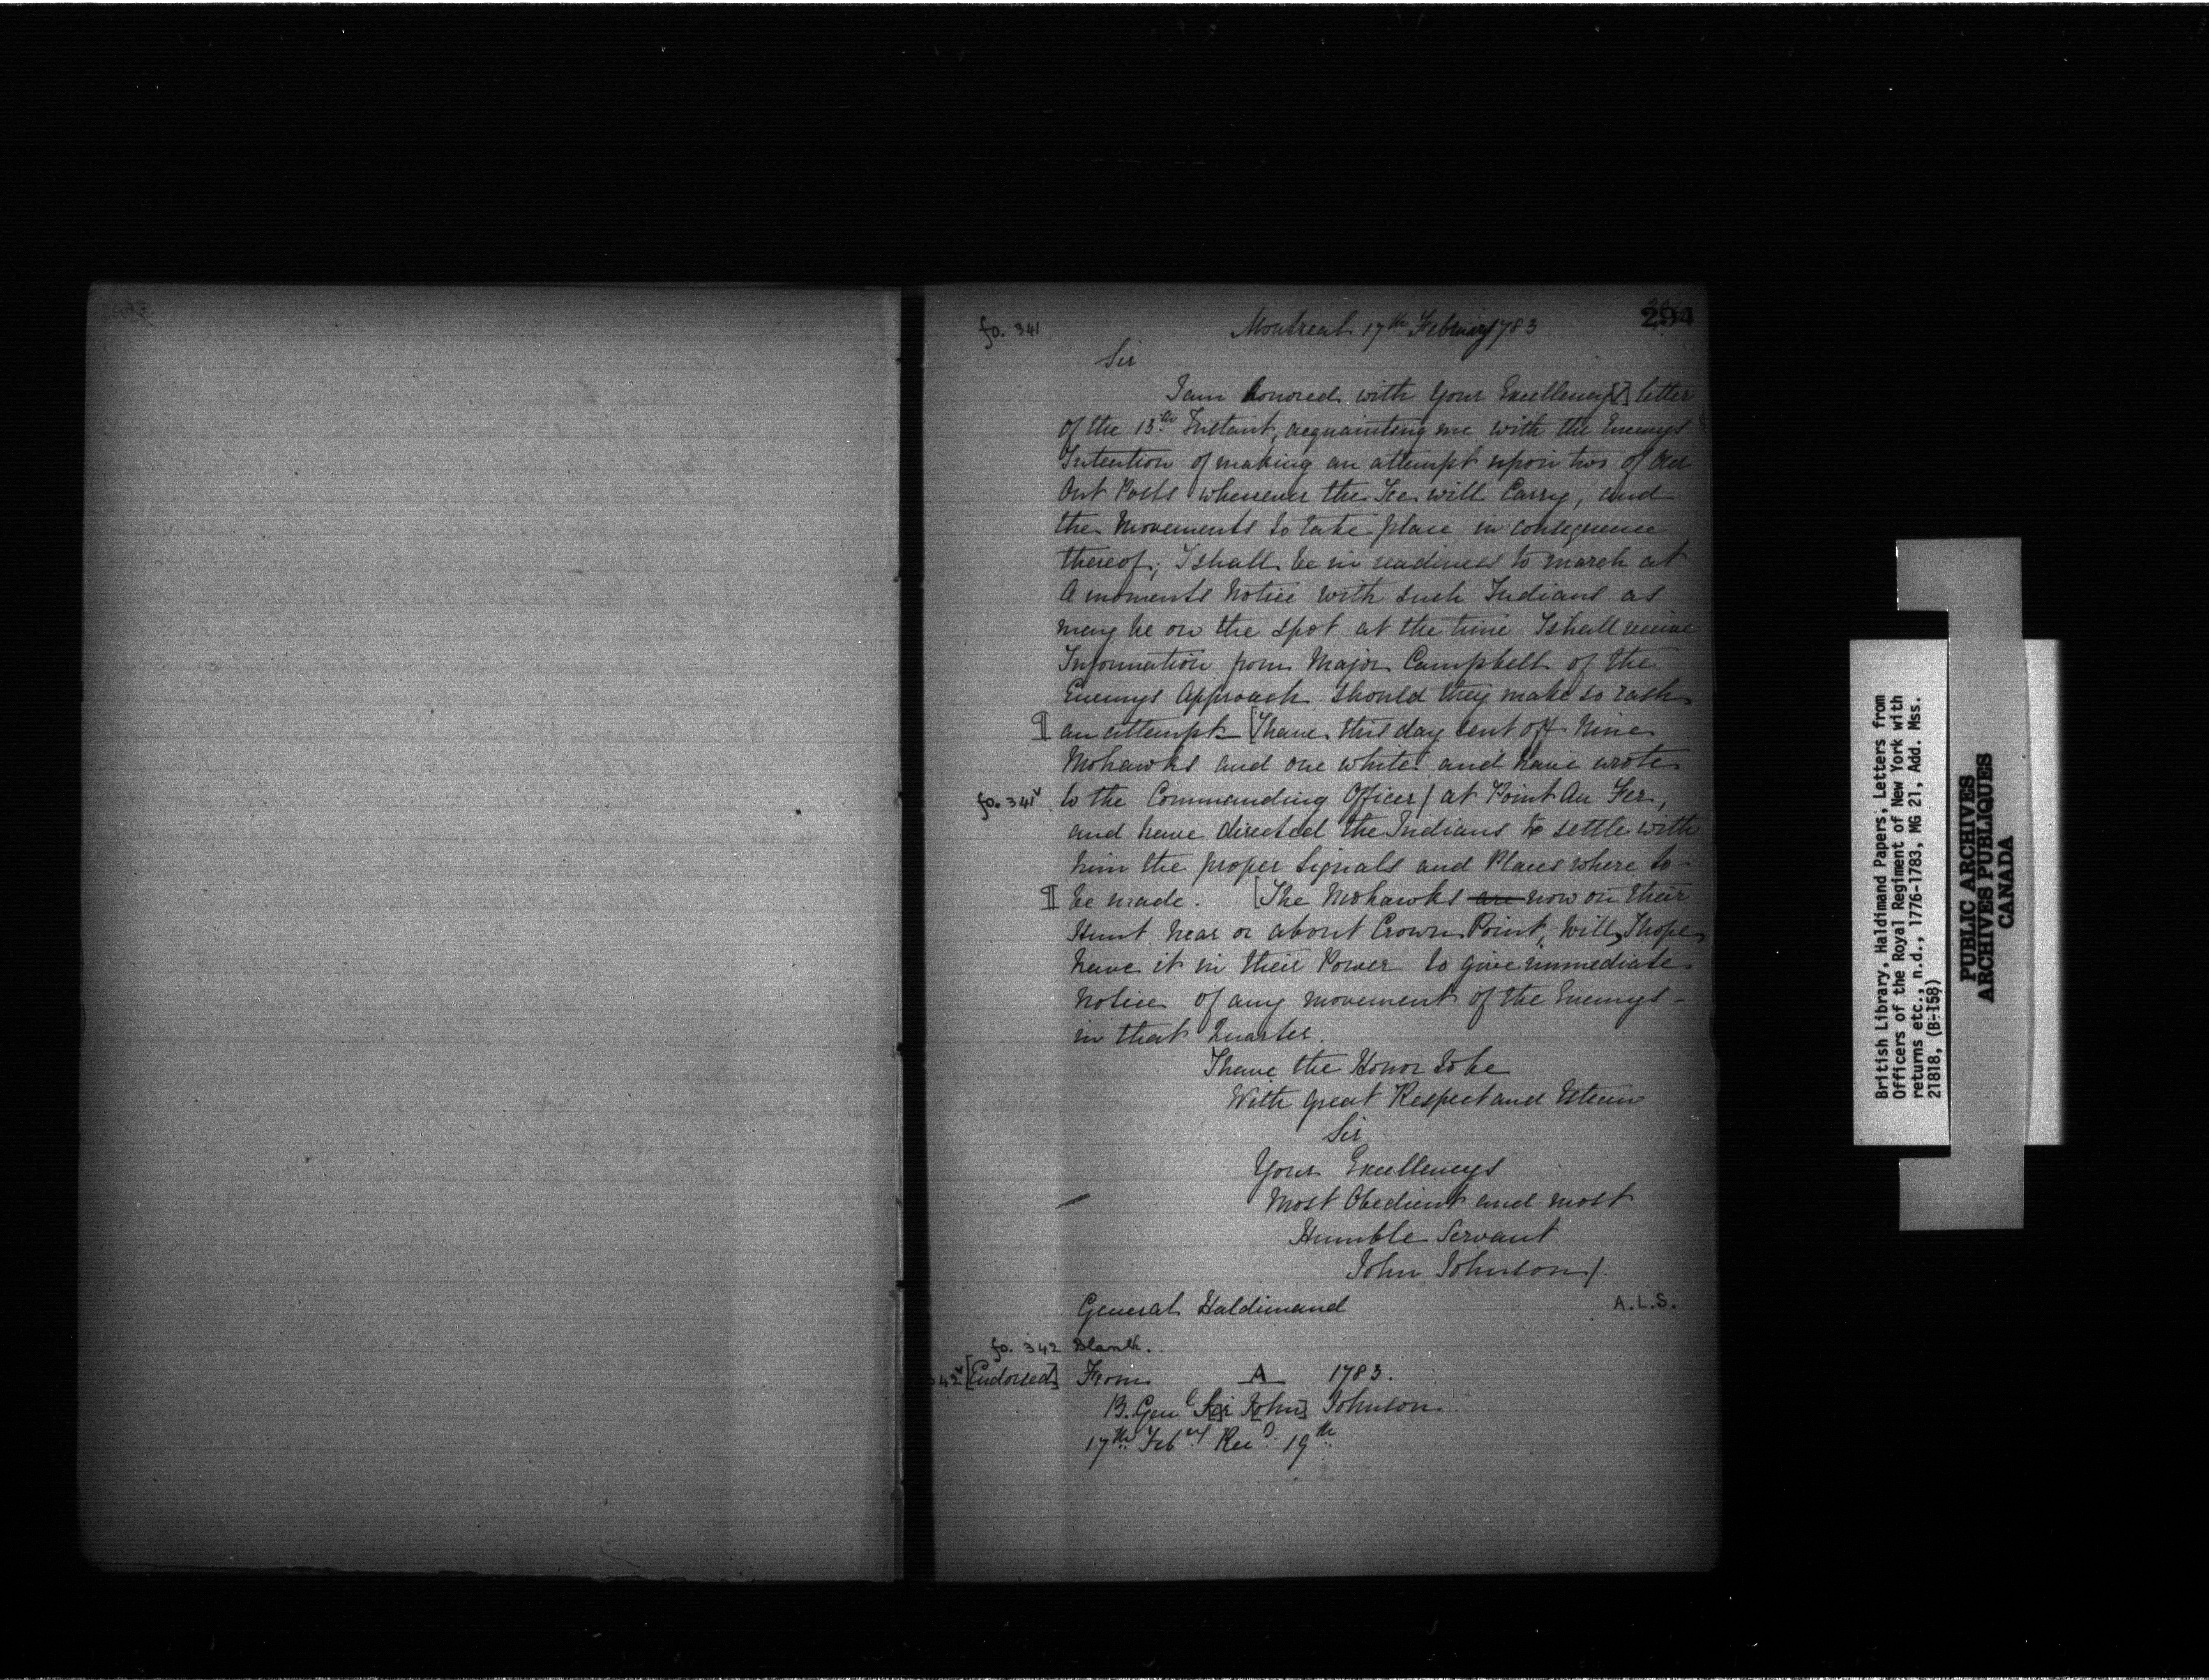 294
fo. 341
Montreal 17th February 1783
Sir
I am honored with Your Excellency[s] letter
of the 13th Instant, acquainting me with the Enemys
Intention of making an attempt upon two of Our
Out Posts whenever the Ice will Carry, and
the Movements to take place in consequence
thereof; I shall be in readiness to march at
A moments Notice with such Indians as
may be on the spot at the time I shall receive
Information from Major Campbell of the
Enemys Approach should they make so rash
¶ an attempt — [I have this day sent off Nine
Mohawks and one white and have wrote
fo. 341v to the Commanding Officer/ at Point Au Fer,
and have directed the Indians to settle with
him the proper Signals and Places where to -
¶ be made. [The Mohawks are now on their
Hunt near or about Crown Point, Will, I hope
have it in their Power to give immediate
Notice of any movement of the Enemys -
in that Quarter.
I have the Honor to be
With great Respect and Esteem
Sir
Your Excellencys
Most Obedient and most
Humble Servant
John Johnson/.
General Haldimand
A.L.S.
fo. 342 Blank.
42v [Endorsed] From A 1783.
B. Genl S[i]r J[ohn] Johnson
17th Febry Recd 19th
British Library, Haldimand Papers; Letters from
Officers of the Royal Regiment of New York with
returns etc., n.d., 1776-1783, MG 21, Add. Mss.
21818, (B-158)
PUBLIC ARCHIVES
ARCHIVES PUBLIQUES
CANADA